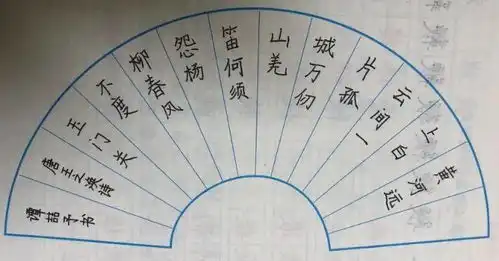 黄河远
上白
云间一
片孤
城万仞
山羌
笛何须
怨杨
柳春风
不度
玉门关
唐王之涣诗
谭喆予书